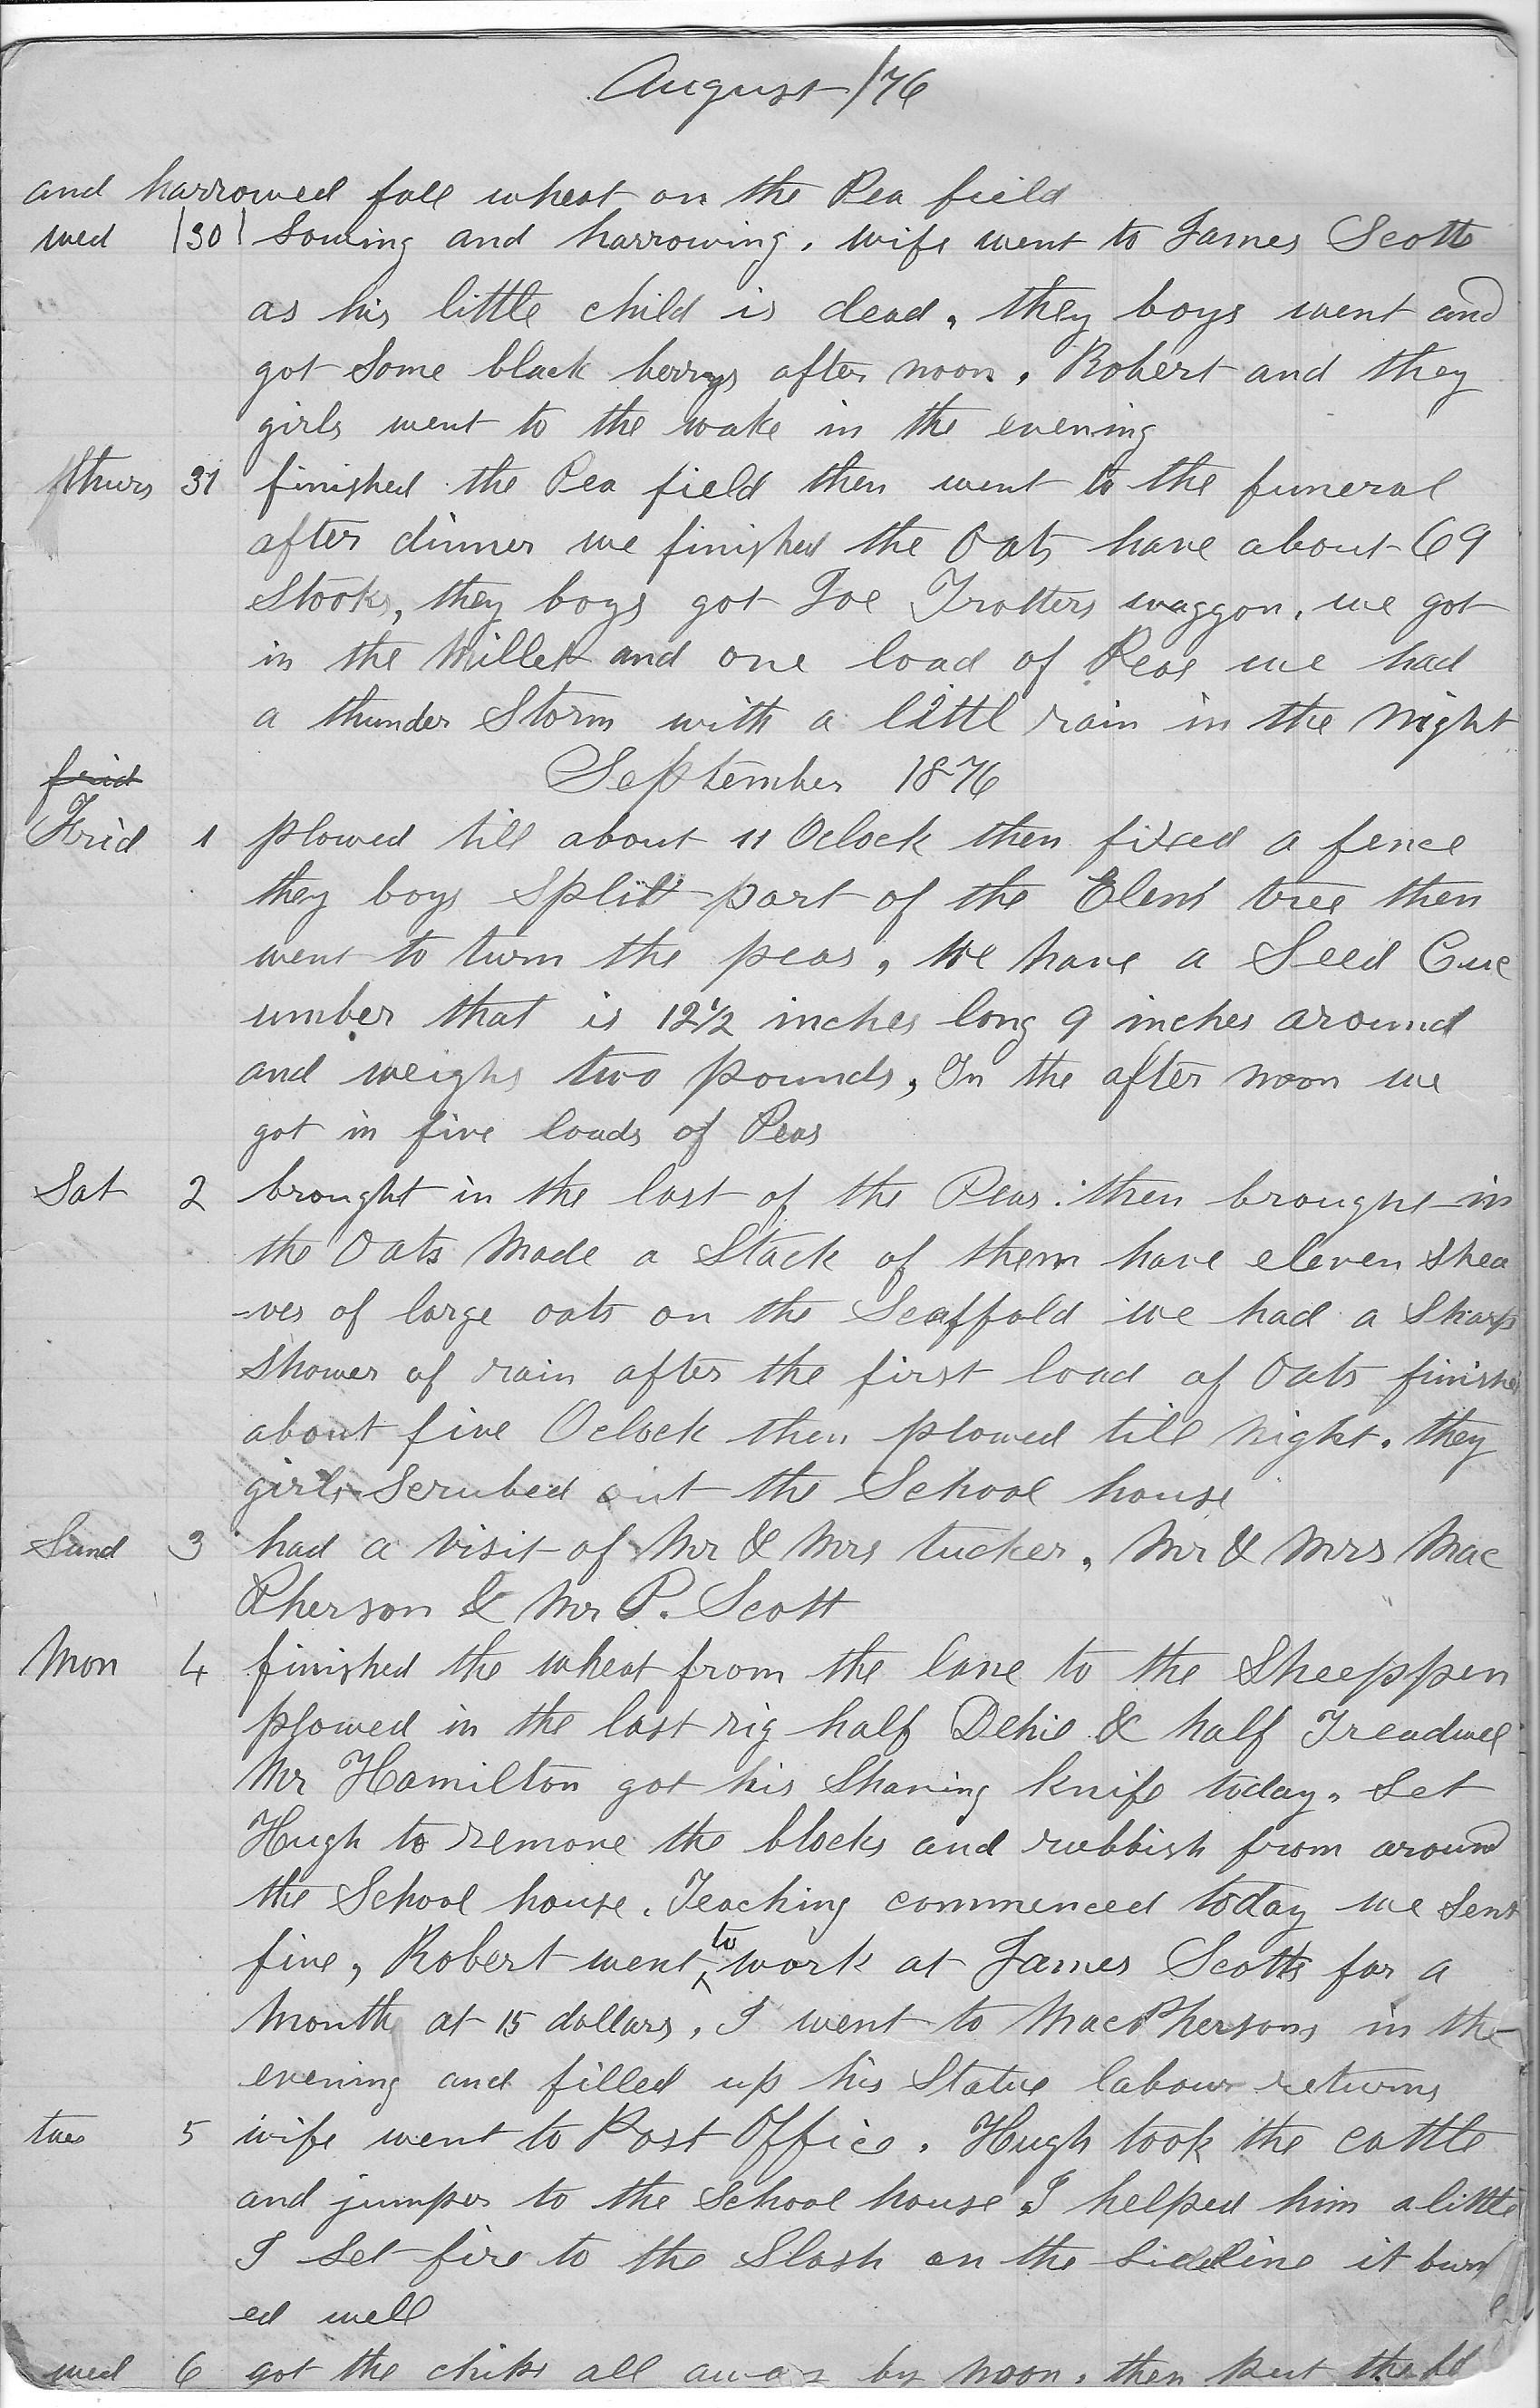 August /76
and harrowed fall wheat on the Pea field
wed 30 Sowing and harrowing. wife went to James Scotts
as his little child is dead. they boys went and
got some black berrys after noon. Robert and they
girls went to the wake in the evening
thurs 31 finished the Pea field then went to the funeral
after dinner we finished the Oats have about 69
Stooks, they boys got Joe Trotters waggon. we got
in the Millet and one load of Peas we had
a thunder Storm with a little rain in the Night
frid September 1876
Frid 1 plowed till about 11 Oclock then fixed a fence
they boys split part of the Elem tree then
went to turn the peas, We have a Seed Cuc
umber that is 12 1/2 inches long 9 inches around
and weighs two pounds, In the after noon we
got in five loads of Peas
Sat 2 brought in the last of the Peas. then brought in
the Oats Made a Stack of them have eleven shea
-ves of large oats on the Scaffold we had a Sharp
Shower of rain after the first load of Oats finished
about five Oclock then plowed till night. they
girls Scrubed out the School house
Sund 3 had a visit of Mr & Mrs tucker, Mr & Mrs Mac
Pherson & Mr P. Scott
Mon 4 finished the wheat from the lane to the Sheeppen
plowed in the last rig half Dehie & half Treadwel
Mr Hamilton got his Shaving knife today. Set
Hugh to remove the blocks and rubbish from around
the School house. Teaching commenced today we Sent
five, Robert went to work at James Scotts for a
Month at 15 dollars. I went to MacPhersons in the
evening and filled up his Statue labour returns
tues 5 wife went to Post Office. Hugh took the cattle
and jumper to the School house I helped him a little
I Set fire to the Slash on the Sideline it burn
ed well
wed 6 got the chips all away by Noon. then put the